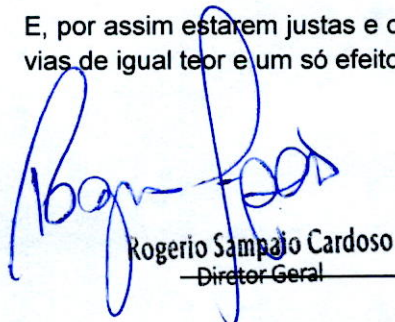 E, por assim estarem justas e
vias de igual teor e um só efeito
Rogerio Sampaio Cardoso
Diretor Geral